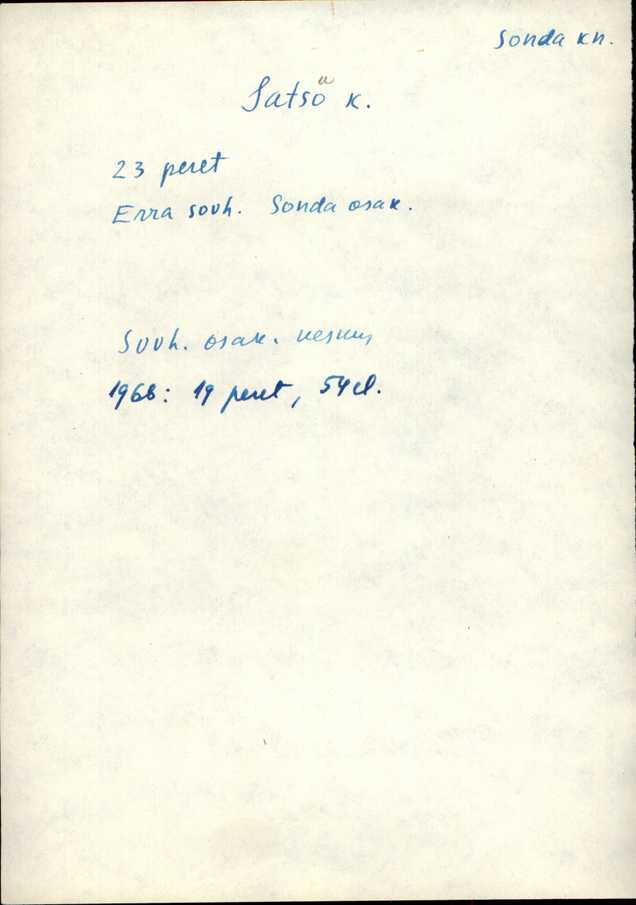 Sonda kn.
Satsõ k.
23 peret
Erra sovh. Sonda osak.
Sovh. osak. keskus
1968: 19 peret, 54 el.